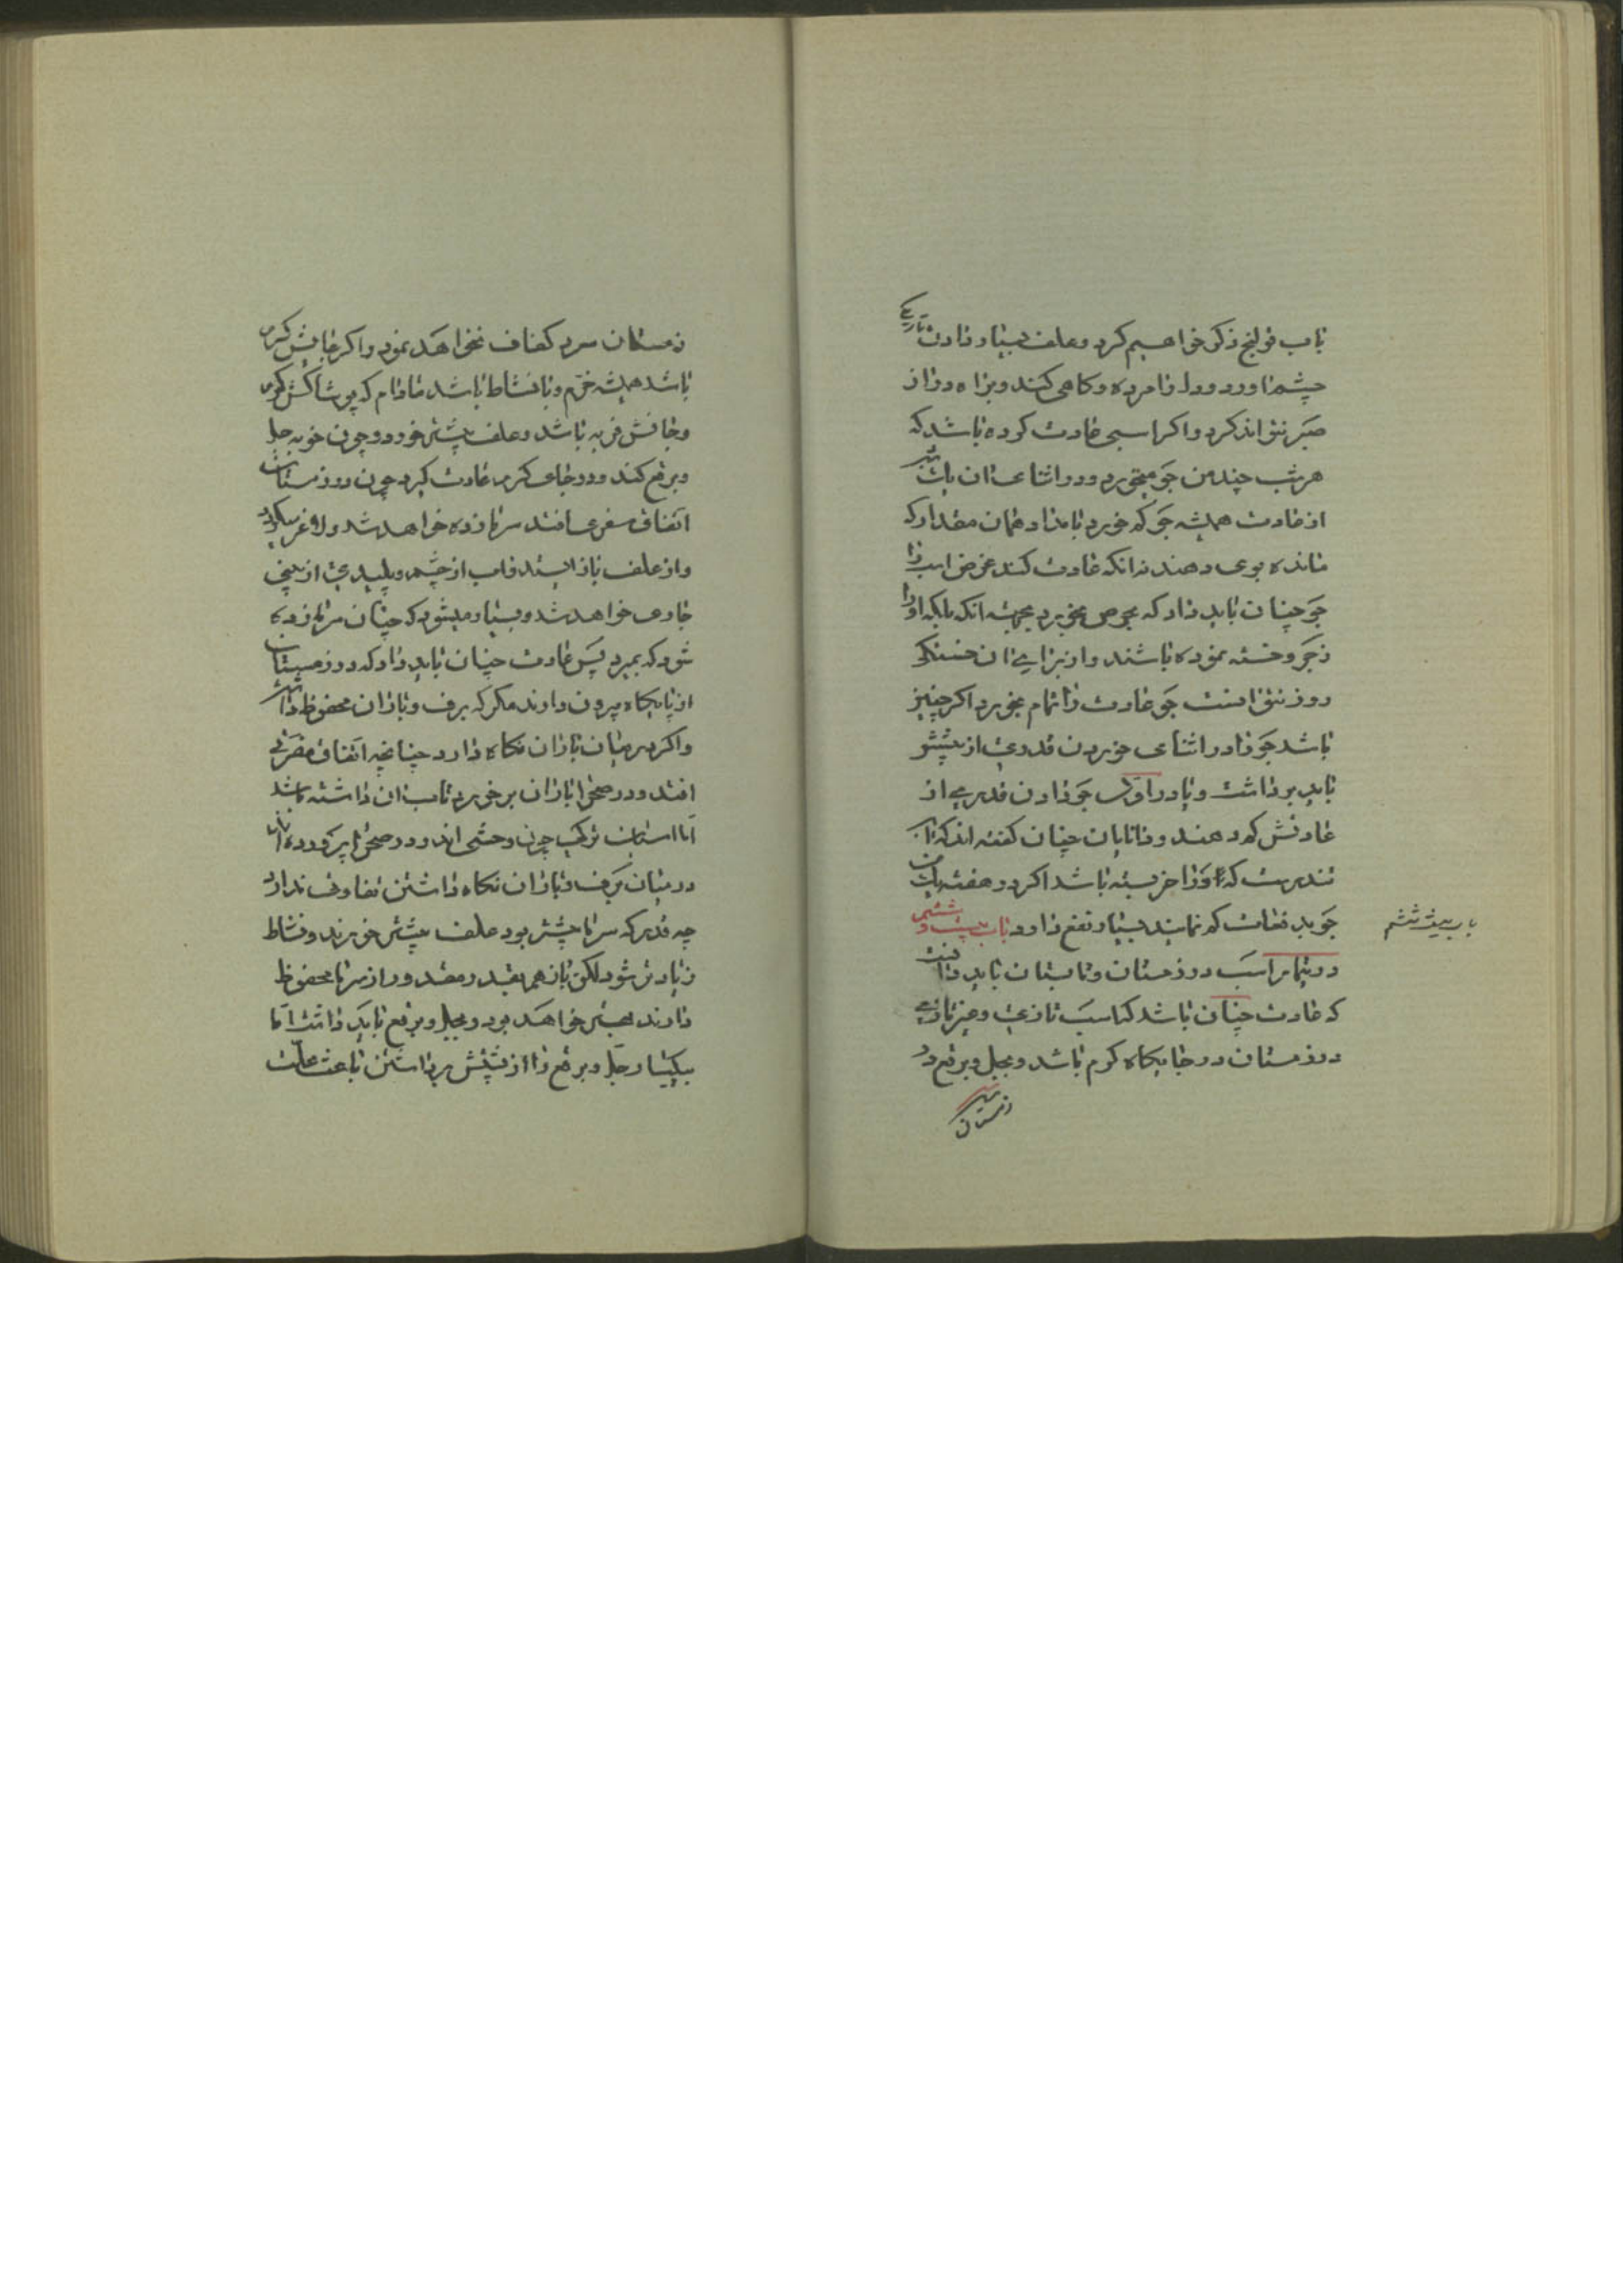 باب قولنج ذکر خواهیم کرد و علف بسیار دادن تاریکی
چشم اورد و دل را مرده و کاهل کند و براه دراز
صبر نتواند کرد و اکر اسبی عادت کرده باشد که
هر شب چند من جو میخورد و در اثنای ان یک شب
از عادت همیشه جو کم خورد بامداد همان مقدار که
مانده بوی دهند نه انکه عادت کند غرض اسب را
جو چنان باید داد که بحرص بخورد بجهته انکه بلکه او را
زجر و خسته نموده باشند و از برای ان خستکی
روز نتوانست جو عادت را تمام بخورد اکر چنین
باشد جو را در اثنای خوردن قدری از پیشش
باید برداشت و یا در اول جو دادن قدری از
عادتش کم دهند و دانایان چنان کفته اند که اسب
تندرست که او را خربسته باشد اکر در هفته یک من
جو بدفعات کم نمایند بسیار نفع دارد باب بیست و ششم
در تیمار اسب در زمستان و تابستان باید دانست
که عادت چنان باشد که اسب تازی و غیر تازی
در زمستان در جایکاه کرم باشد و بجل و برقع در
زمستان
باب بیست و ششم
زمستان سرد کفاف نخواهد نمود و اکر جایش کرم
باشد همیشه خرم و با نشاط باشد مادام که پوشاکش کرم
و جانش فربه باشد و علف بیشتر خورد و چون خو به جل
و برقع کند و در جای کرم عادت کیرد چون در زمستان
اتفاق سفری افتد سرما زده خواهد شد و لاغر میکردد
و از علف باز ایستد و اب از چشم و پلیدی از بینی
جاری خواهد شد و بسیار میشود که چنان سرما زده
شود که بمیرد پس عادت چنان باید داد که در زمستان
از پایکاه بیرون دارند مکر که برف و باران محفوظ داشت
و اکر در میان باران نکاه دارد چنانچه اتفاق سفری
افتد و در صحرا باران بر خورد تاب ان داشته باشد
اما اسبان ترکی چون وحشی اند و در صحرا پرورده اند
در میان برف و باران نکاه داشتن تفاوتی ندارد
چه قدر که سرما بیشتر بود علف بیشتر خورند و نشاط
زیادتر شود لکن باز هم بقدر مقدور از سرما محفوظ
دارند بهتر خواهد بود و بجل و برقع باید داشت اما
بیکبار جل و برقع را از پشتش برداشتن باعث علت